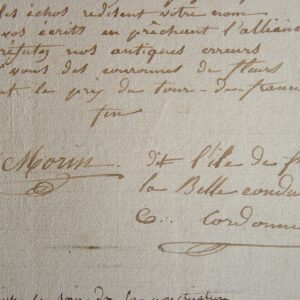 les échos redisent votre nom
vos écrits en prêchant l'allianc
réfutez nos antiques erreurs
vous des couronnes de fleurs
t le prix du tour-de-france
fin
Morin. dit l'ile de f
la Belle condu
C.. Cordonn